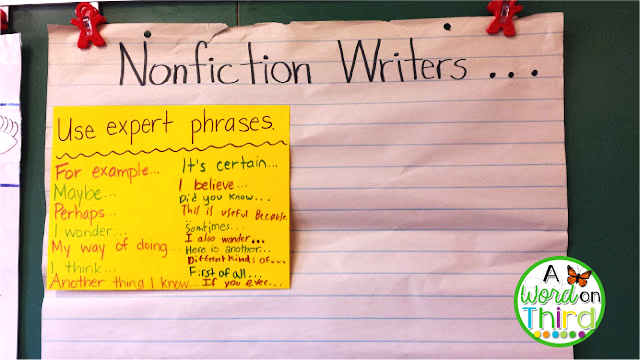 Nonfiction Writers ...
Use expert phrases.
For example...
Maybe...
Perhaps...
I wonder...
My way of doing...
I think...
Another thing I know...
It's certain...
I believe...
Did you know...
This is useful because
Somtimes...
I also wonder...
Here is another...
Different kinds of...
First of all...
If you ever...
A
Word on
Third